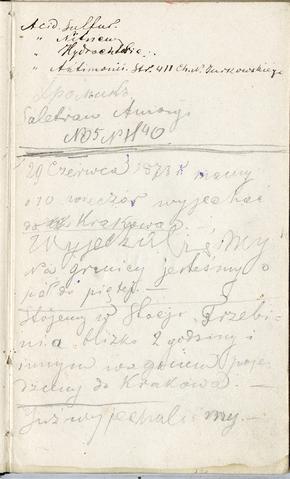 Acid. Sulfur.
" Nitricum
" Hydrochlor.
" Antimonii. Str. 411 Chem. Turkowskiego
Хромикъ
Saletran Amony
No 5 N 1/40
29 Czerwca 1873 r. mamy
o 10 wieczór wyjechać
do Krakowa.
Wyjechaliśmy
Na granicy jesteśmy o
pół do piątej. —
Stojemy w Stacji Trzebi-
nia blizko 2 godziny i
innym wagonem poje-
dziemy do Krakowa. —
Już wyjechaliśmy. —